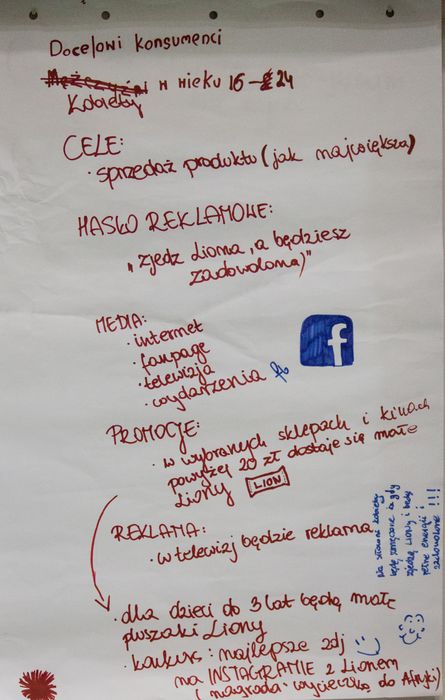 Docelowi konsumenci
Mężczyźni w wieku 16-24
Kobiety
CELE:
· sprzedaż produktu (jak największa)
HASŁO REKLAMOWE:
"zjedz Liona, a będziesz
zadowolona)"
MEDIA:
· internet
· fanpage
· telewizja
· wydarzenia fb
f
PROMOCJE:
· w wybranych sklepach i kinach
powyżej 20 zł dostaje się małe
Liony LION
REKLAMA:
· w telewizj będzie reklama
Na siłowni kobiety
będą zmęczone a gdy
zjedzą Liony i będą
pełne energii i
zadowolone !!!
· dla dzieci do 3 lat będą małe
pluszaki Liony
· konkurs: najlepsze zdj
na INSTAGRAMIE z Lionem
(nagroda wycieczka do Afryki)